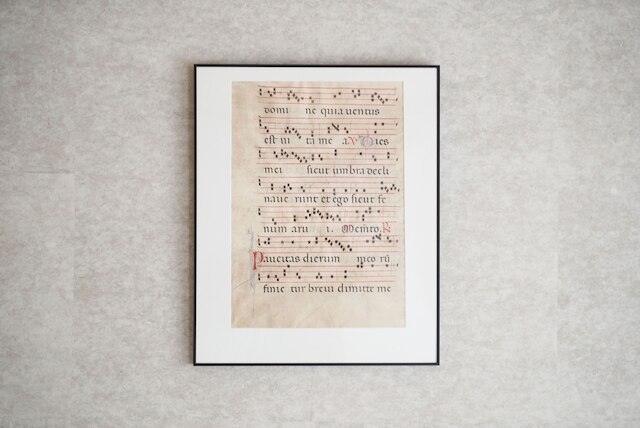 domi ne quia uentus
est ui ta me a. V Dies
mei sicut umbra decli
naue runt et ego sicut fe
num aru i. Memto. R
Paucitas dierum meo rū
finie tur breui dimitte me